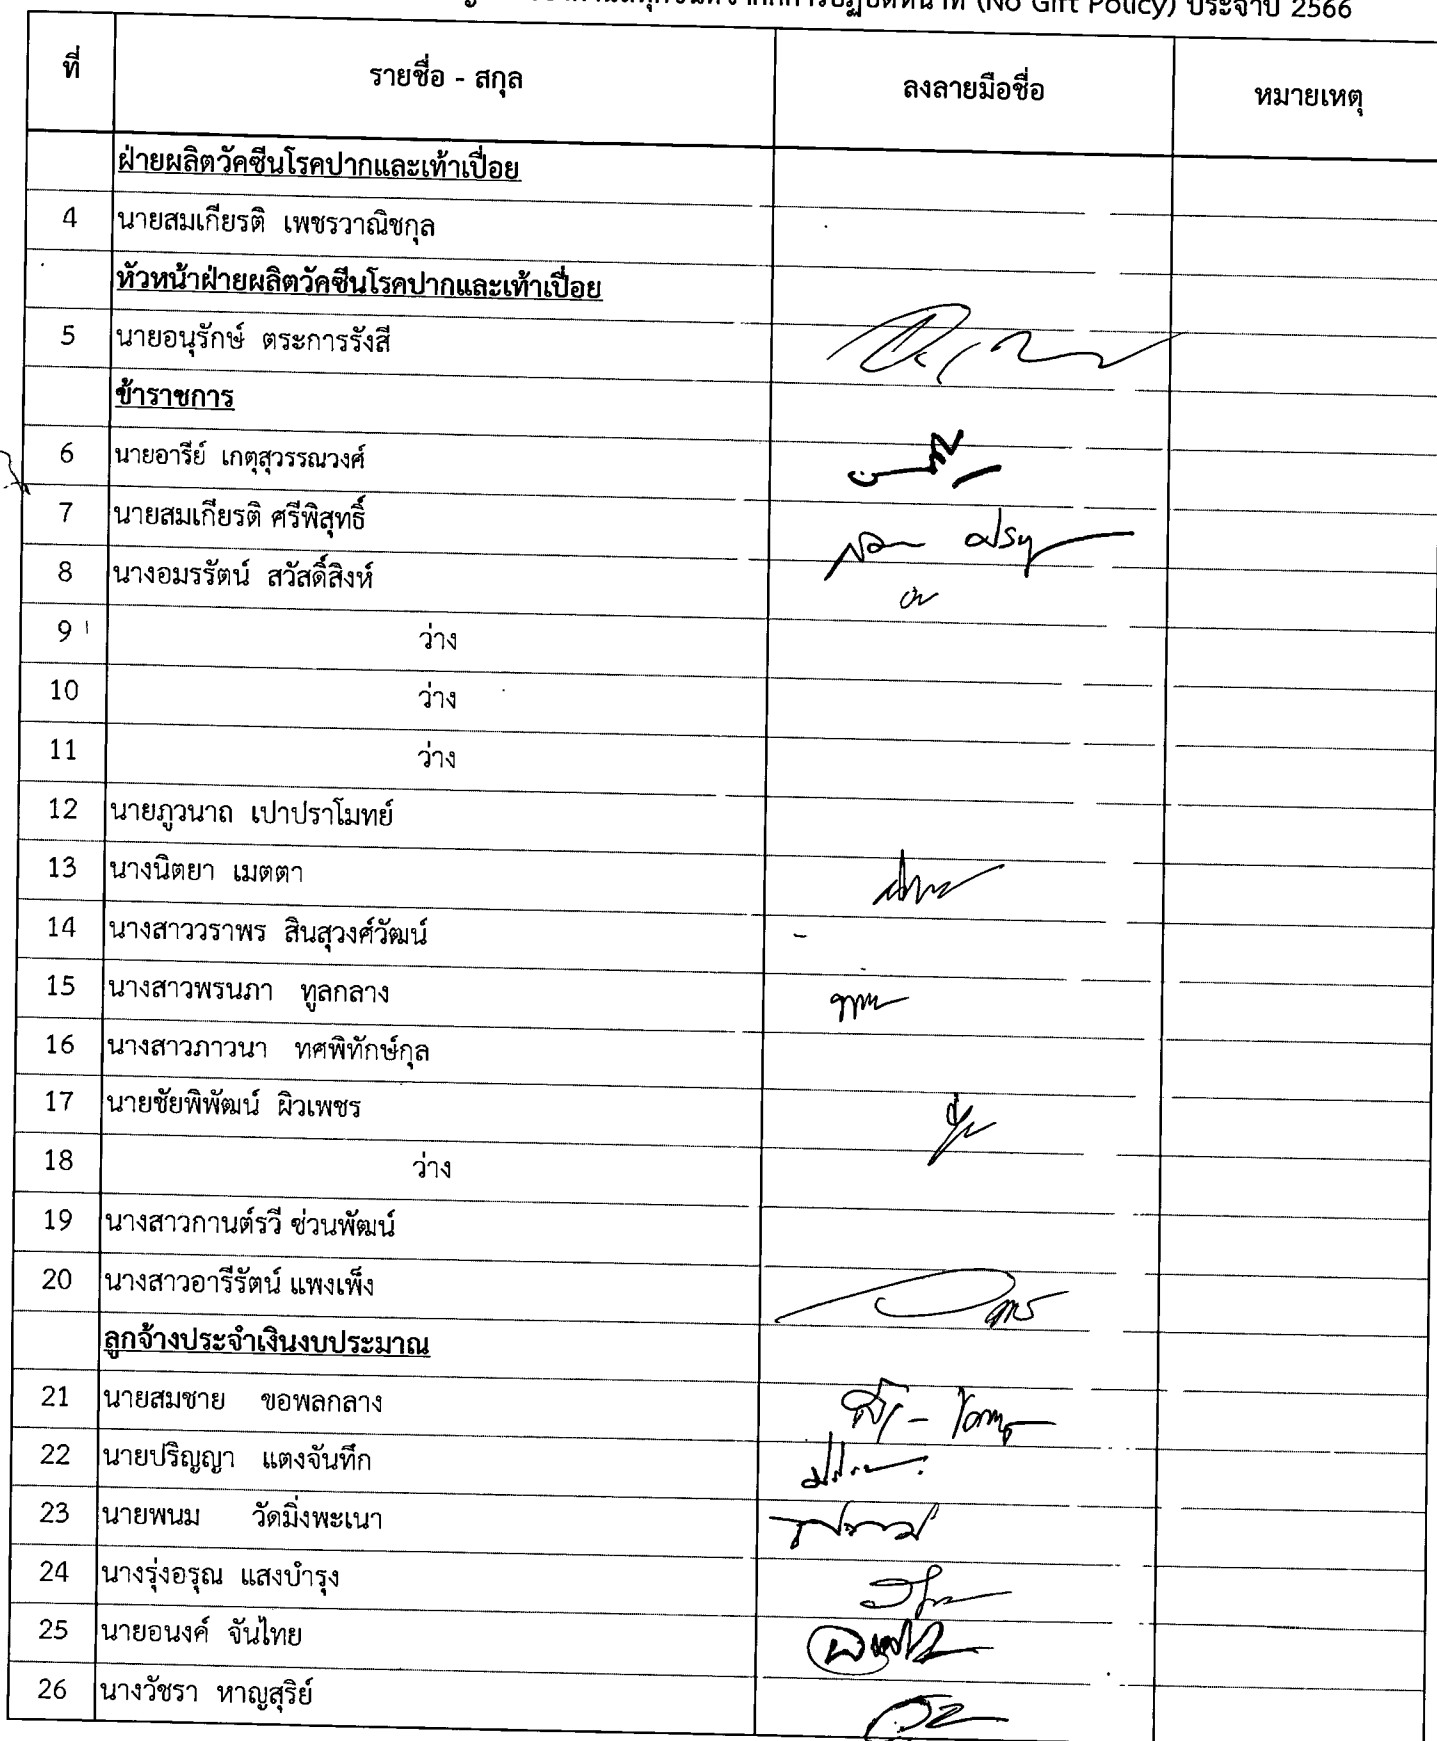 (No Gift Policy) ประจำปี 2566
ที่ รายชื่อ - สกุล ลงลายมือชื่อ หมายเหตุ
ฝ่ายผลิตวัคซีนโรคปากและเท้าเปื่อย
4 นายสมเกียรติ เพชรวาณิชกุล
หัวหน้าฝ่ายผลิตวัคซีนโรคปากและเท้าเปื่อย
5 นายอนุรักษ์ ตระการรังสี
ข้าราชการ
6 นายอารีย์ เกตุสุวรรณวงศ์
7 นายสมเกียรติ ศรีพิสุทธิ์
8 นางอมรรัตน์ สวัสดิ์สิงห์
9 ว่าง
10 ว่าง
11 ว่าง
12 นายภูวนาถ เปาปราโมทย์
13 นางนิตยา เมตตา
14 นางสาววราพร สินสุวงศ์วัฒน์ -
15 นางสาวพรนภา ทูลกลาง
16 นางสาวภาวนา ทศพิทักษ์กุล
17 นายชัยพิพัฒน์ ผิวเพชร
18 ว่าง
19 นางสาวกานต์รวี ช่วนพัฒน์
20 นางสาวอารีรัตน์ แพงเพ็ง
ลูกจ้างประจำเงินงบประมาณ
21 นายสมชาย ขอพลกลาง
22 นายปริญญา แตงจันทึก
23 นายพนม วัดมิ่งพะเนา
24 นางรุ่งอรุณ แสงบำรุง
25 นายอนงค์ จันไทย
26 นางวัชรา หาญสุริย์